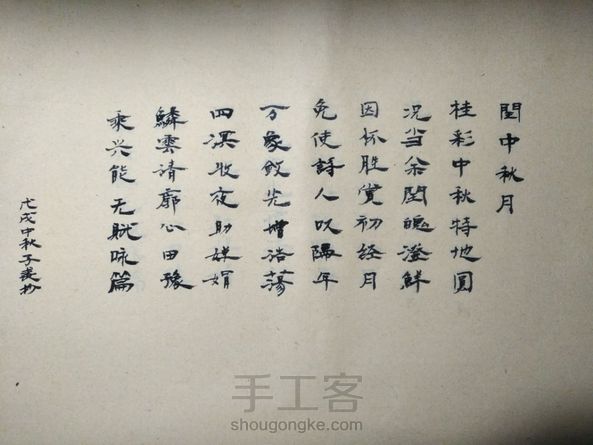 閏中秋月
桂彩中秋特地圓
况当余閏魄澄鮮
因怀胜赏初经月
免使詩人叹隔年
万象敛光增浩蕩
四溟收夜助婵娟
鱗雲清廓心田豫
乘兴能无赋咏篇
戊戌中秋子美抄
手工客
shougongke.com